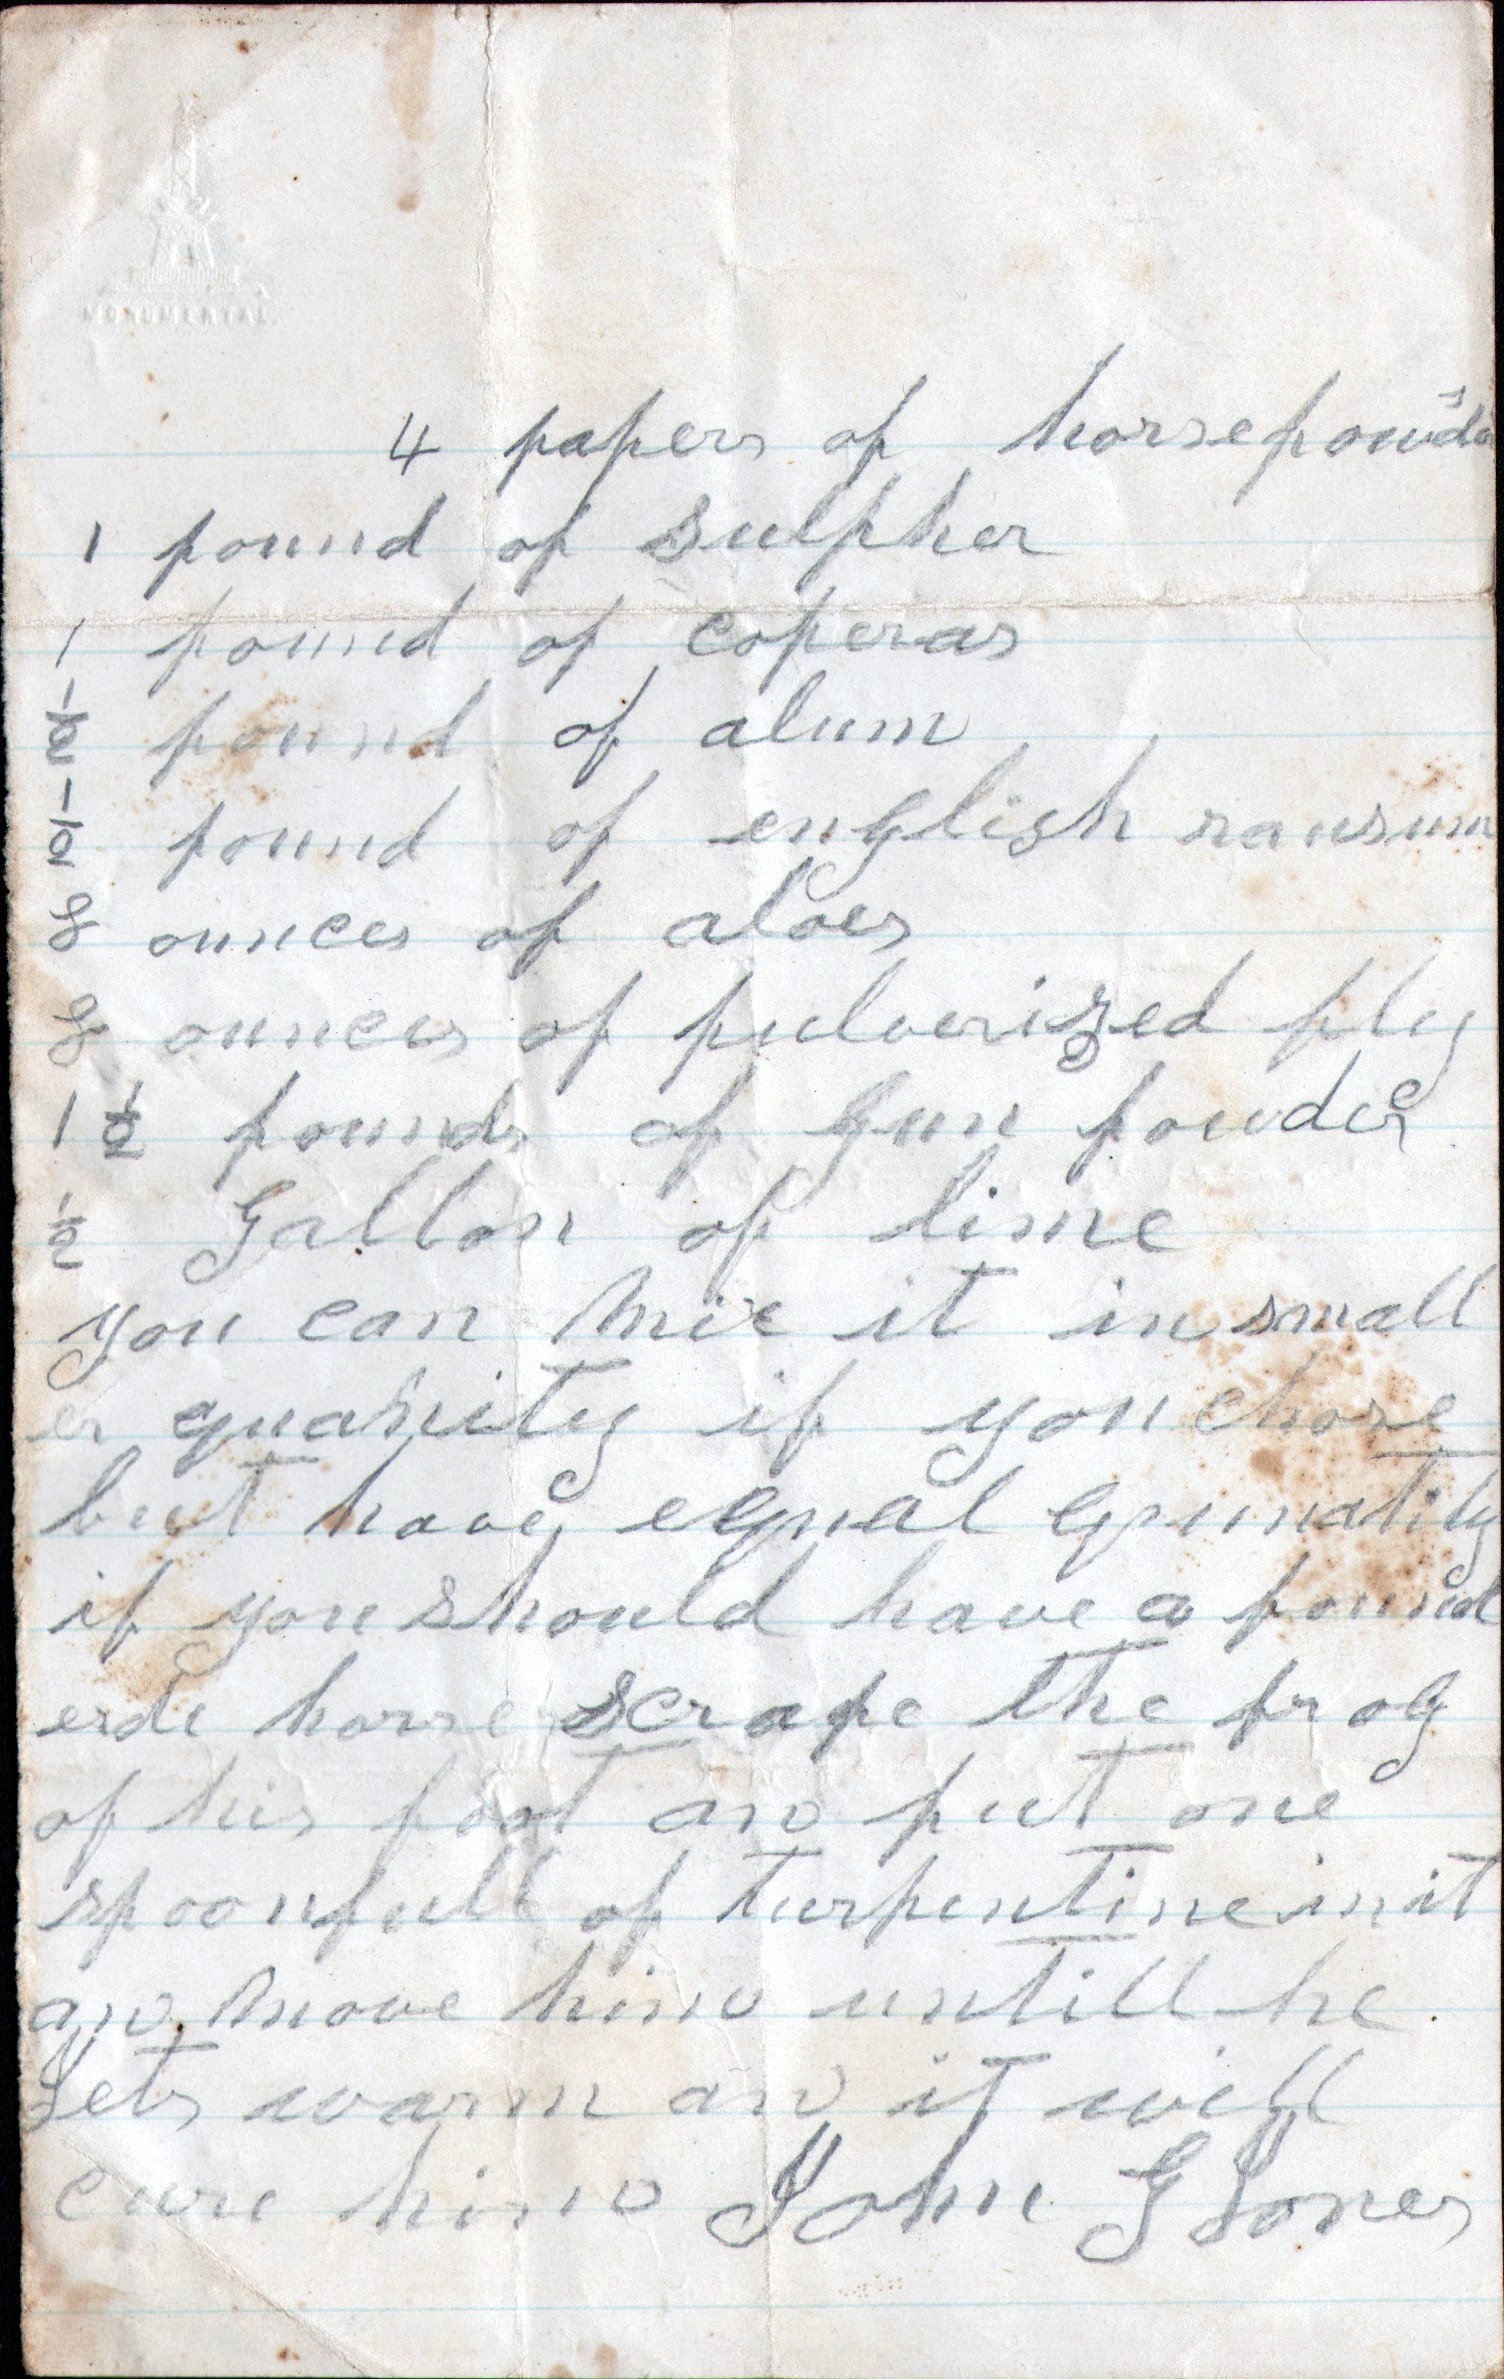 MONUMENTAL
4 papers of horsepowders
1 pound of sulpher
1 pound of coperas
1/2 pound of alum
1/2 pound of english rausum
8 ounces of aloes
8 ounces of pulverized fly
1 1/2 pounds of gun powder
1/2 Gallon of lime
you can mix it in small
er quanity if you chose
but have equal qunatity
if you should have a found
erde horse scrape the frog
of his foot an put one
spoonfull of turpentine in it
an move him untill he
gets warm an it will
cure him John G Jones